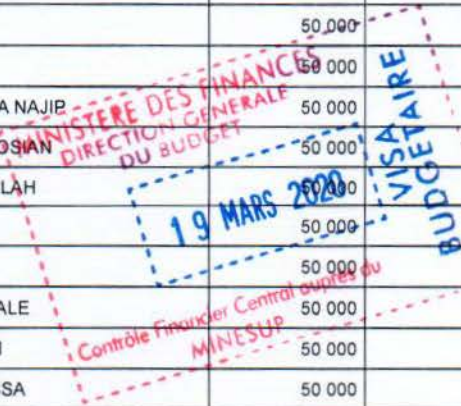 50 000
50 000
A NAJIP 50 000
OSIAN 50 000
LAH 50 000
50 000
50 000
ALE 50 000
50 000
SSA 50 000
MINISTERE DES FINANCES
DIRECTION GENERALE
DU BUDGET
19 MARS 2020
VISA
BUDGETAIRE
Contrôle Financier Central auprès du
MINESUP